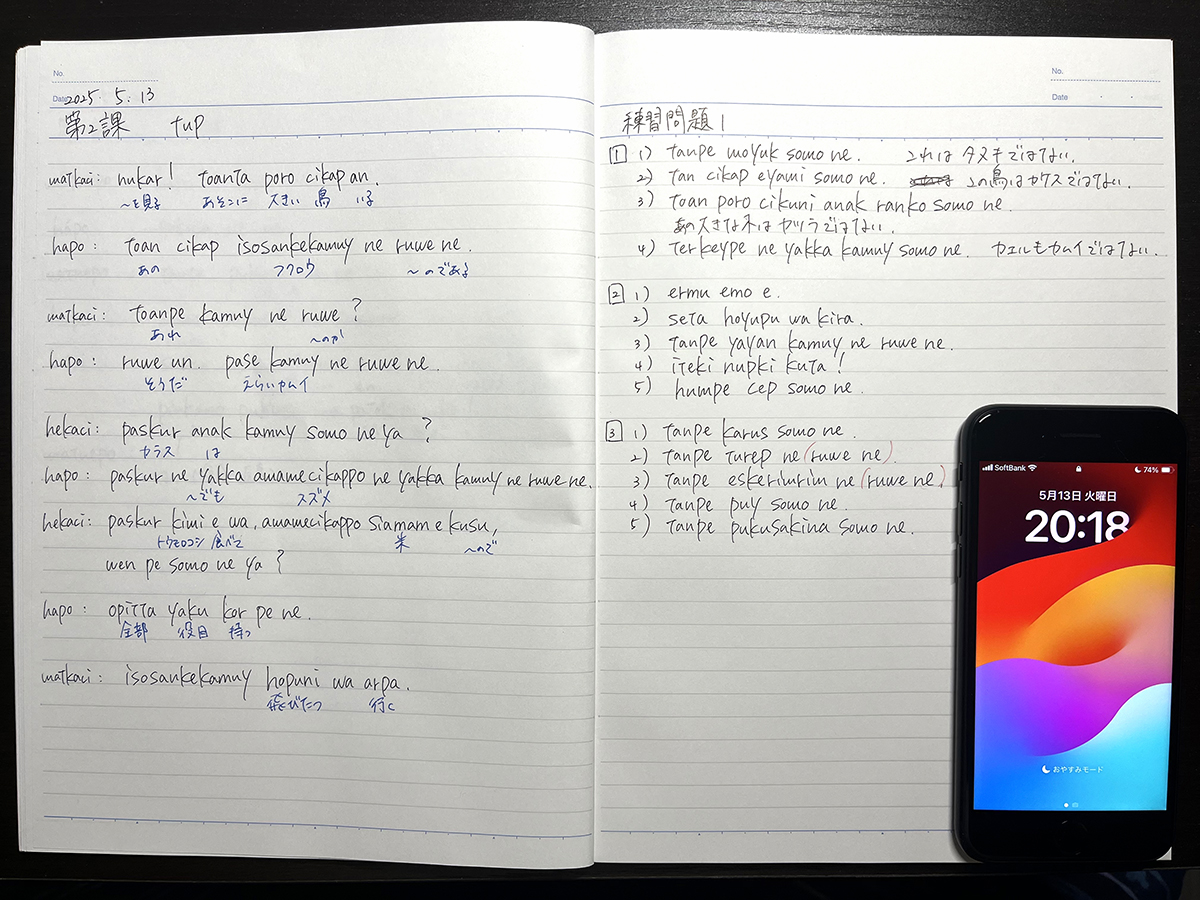 No.
Date 2025. 5. 13
第2課 tup
matkaci: nukar! toanta poro cikap an.
〜を見る あそこに 大きい 鳥 いる
hapo: toan cikap isosankekamuy ne ruwe ne.
あの フクロウ 〜のである
matkaci: toanpe kamuy ne ruwe?
あれ 〜のか
hapo: ruwe un. pase kamuy ne ruwe ne.
そうだ えらいカムイ
hekaci: paskur anak kamuy somo ne ya?
カラス は
hapo: paskur ne yakka amamecikappo ne yakka kamuy ne ruwe ne.
〜でも スズメ
hekaci: paskur kimi e wa, amamecikappo siamam e kusu,
トウモロコシ 食べて 米 〜ので
wen pe somo ne ya?
hapo: opitta yaku kor pe ne.
全部 役目 持つ
matkaci: isosankekamuy hopuni wa arpa.
飛びたつ 行く
No.
Date
練習問題1
1 1) tanpe moyuk somo ne. これは タヌキではない.
2) tan cikap eyami somo ne. この鳥はカケスではない.
3) toan poro cikuni anak ranko somo ne.
あの大きな木はカツラではない.
4) terkeype ne yakka kamuy somo ne. カエルもカムイではない.
2 1) ermu emo e.
2) seta hoyupu wa kira.
3) tanpe yayan kamuy ne ruwe ne.
4) iteki nupki kuta!
5) humpe cep somo ne.
3 1) tanpe karus somo ne.
2) tanpe turep ne (ruwe ne).
3) tanpe eskerimrim ne (ruwe ne.)
4) tanpe puy somo ne.
5) tanpe pukusakina somo ne.
SoftBank 74%
5月13日 火曜日
20:18
おやすみモード